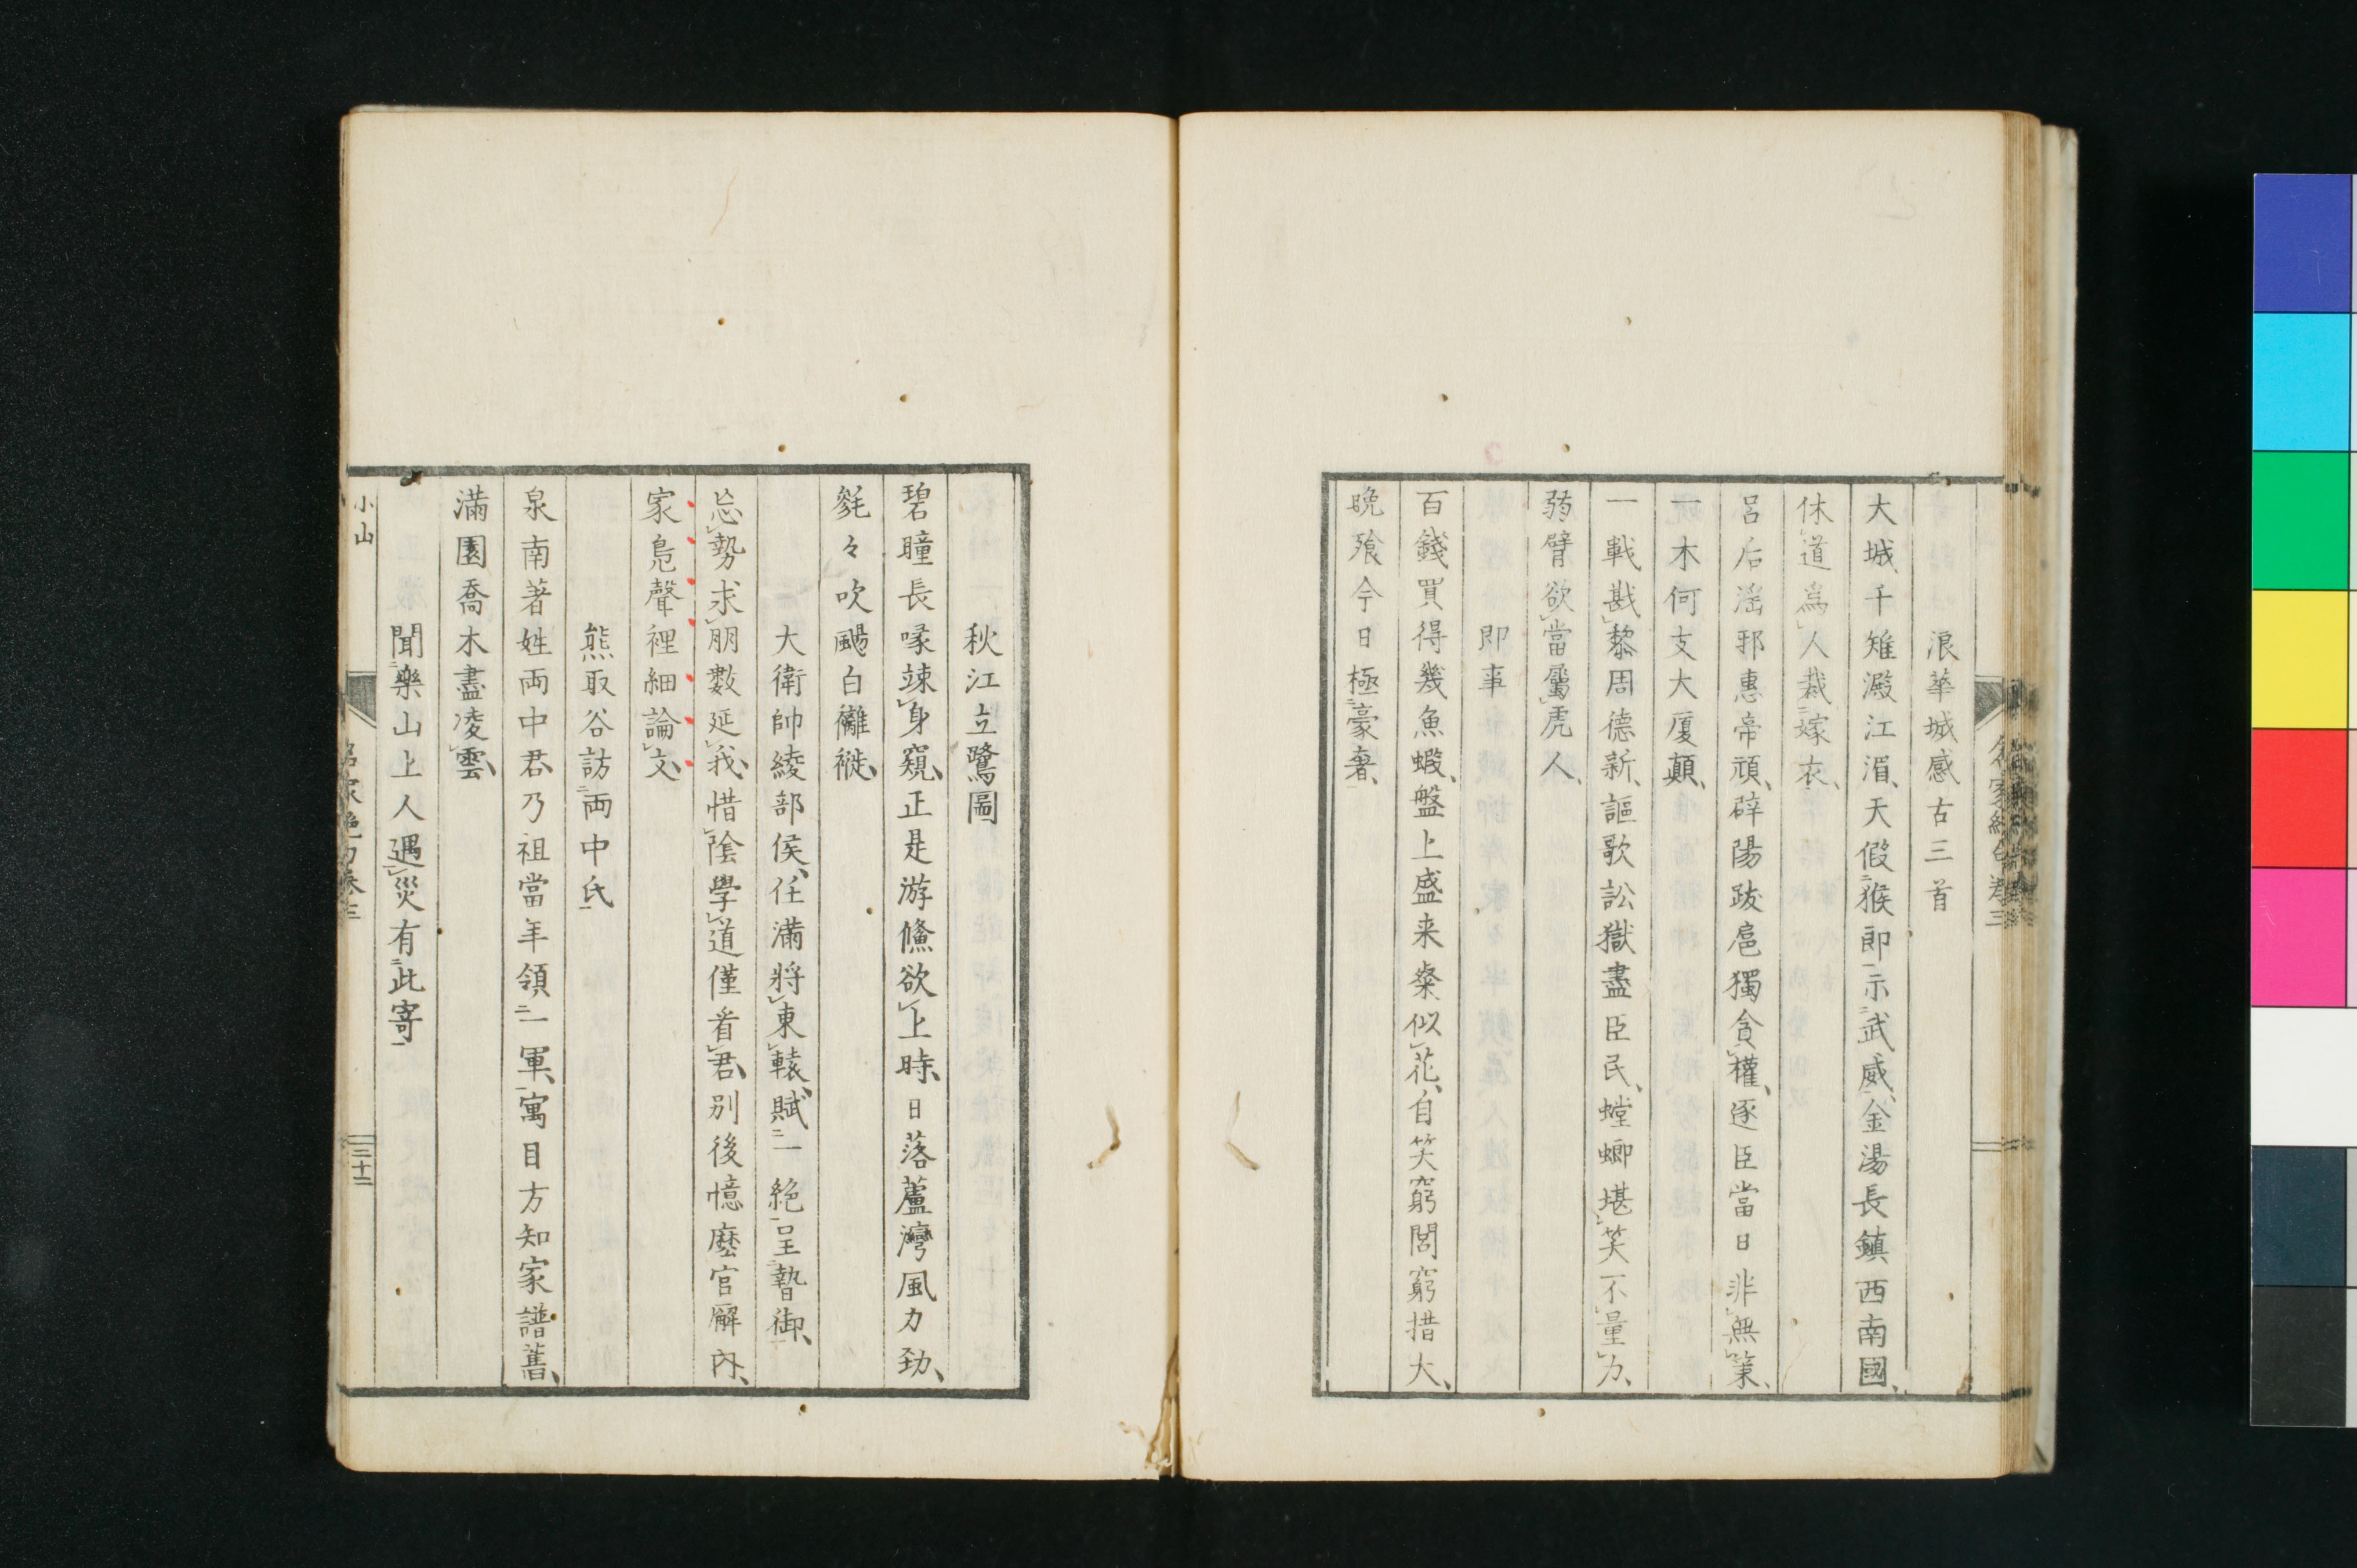 浪華城感古三首
大城千雉澱江湄、天假猴郎示武威、金湯長鎮西南國、
休道爲人裁嫁衣、
呂后滛邪惠帝頑、辟陽跋扈獨貪權、逐臣當日非無策、
一木何支大厦顛、
一戰戡黎周德新、謳歌訟獄盡臣民、螳螂堪笑不量力、
弱臂欲當屬虎人、
即事
百錢買得幾魚蝦、盤上盛来粲似花、自笑窮閻窮措大、
晩飱今日極豪奢、
名家絶句卷三
秋江立鷺圖
碧瞳長喙竦身窺、正是游鯈欲上時、日落蘆灣風力勁、
毿々吹颺白襳褷、
大衛帥綾部侯、任滿將東轅、賦一絶呈暬御、
忘勢求朋數延我、惜陰學道僅看君、別後憶麼官廨內、
家鳧聲裡細論文、
熊取谷訪両中氏
泉南著姓両中君、乃祖當年領一軍、寓目方知家譜舊、
滿園喬木盡凌雲、
聞樂山上人遇災有此寄
小山
名家絶句卷三
三十二